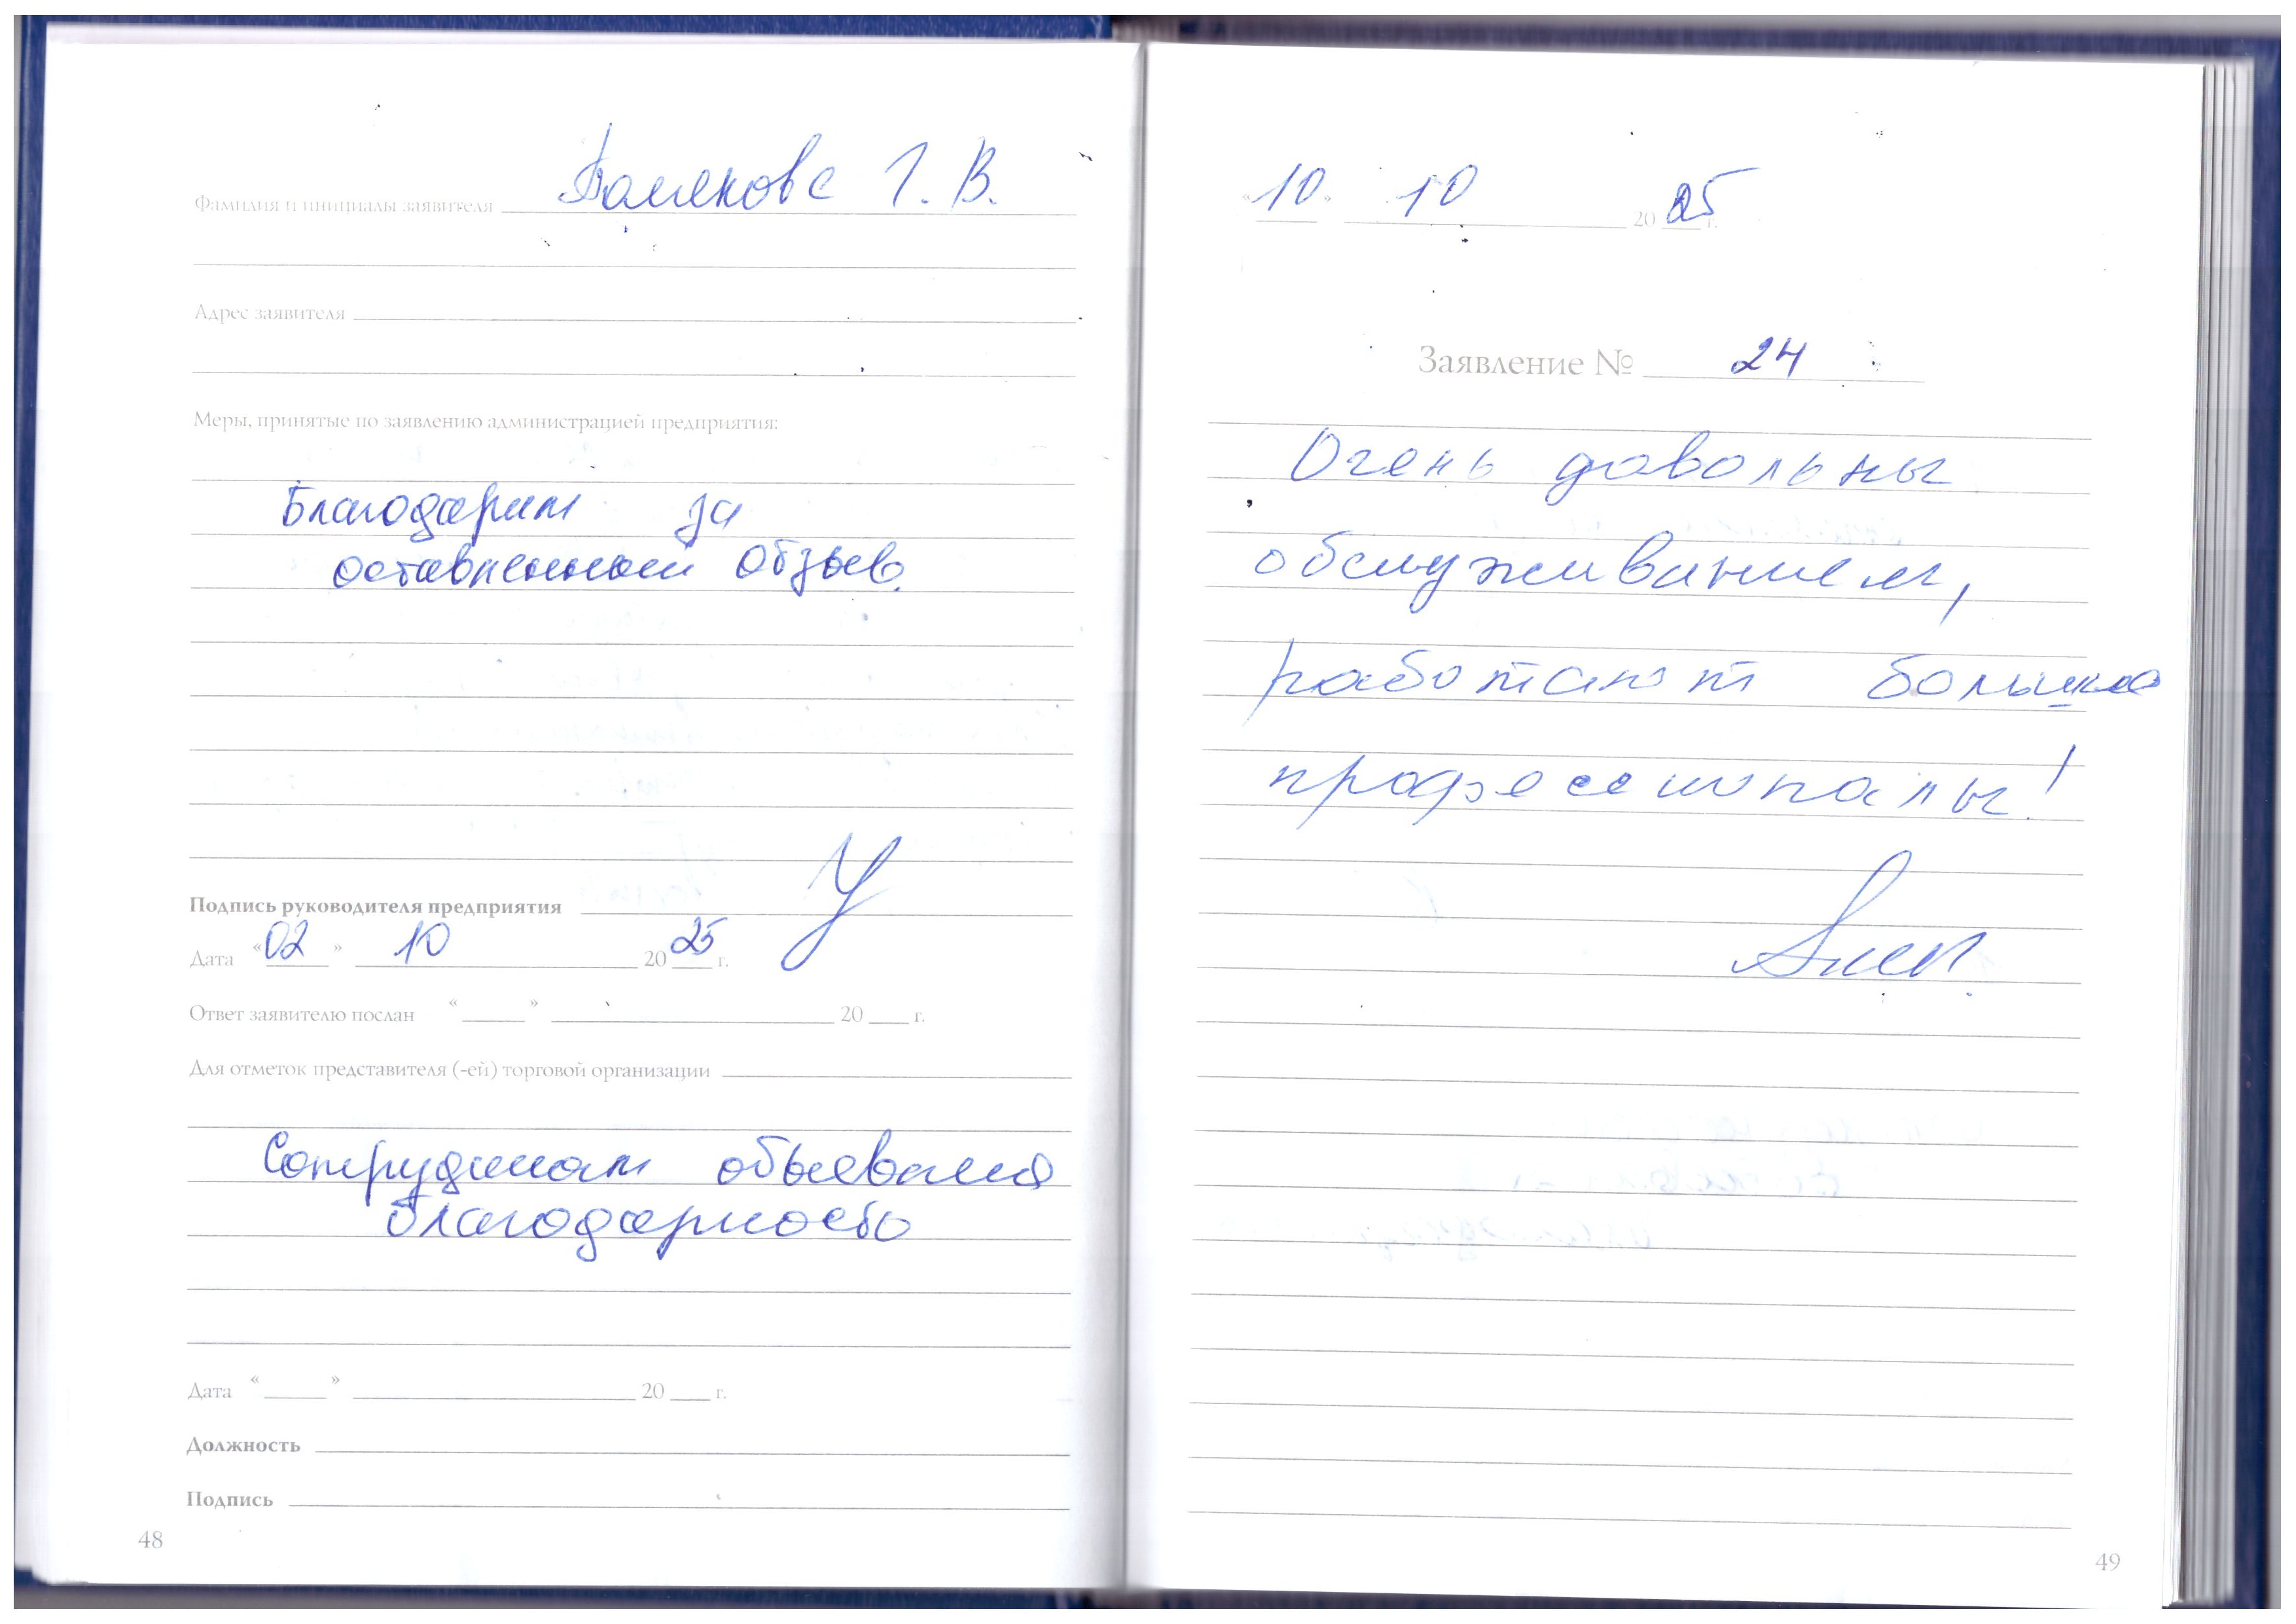 Фамилия и инициалы заявителя Г. В.
Адрес заявителя
Меры, принятые по заявлению администрацией предприятия:
Благодарим за
оставленный отзыв.
Подпись руководителя предприятия
Дата «02» 10 2025 г.
Ответ заявителю послан «___» ___ 20 ___ г.
Для отметок представителя (-ей) торговой организации
Сотрудникам объявлена
благодарность
Дата «___» ___ 20 ___ г.
Должность
Подпись
48
«10» 10 2025 г.
Заявление № 24
Очень довольны
обслуживанием,
работают большие
профессионалы!
49